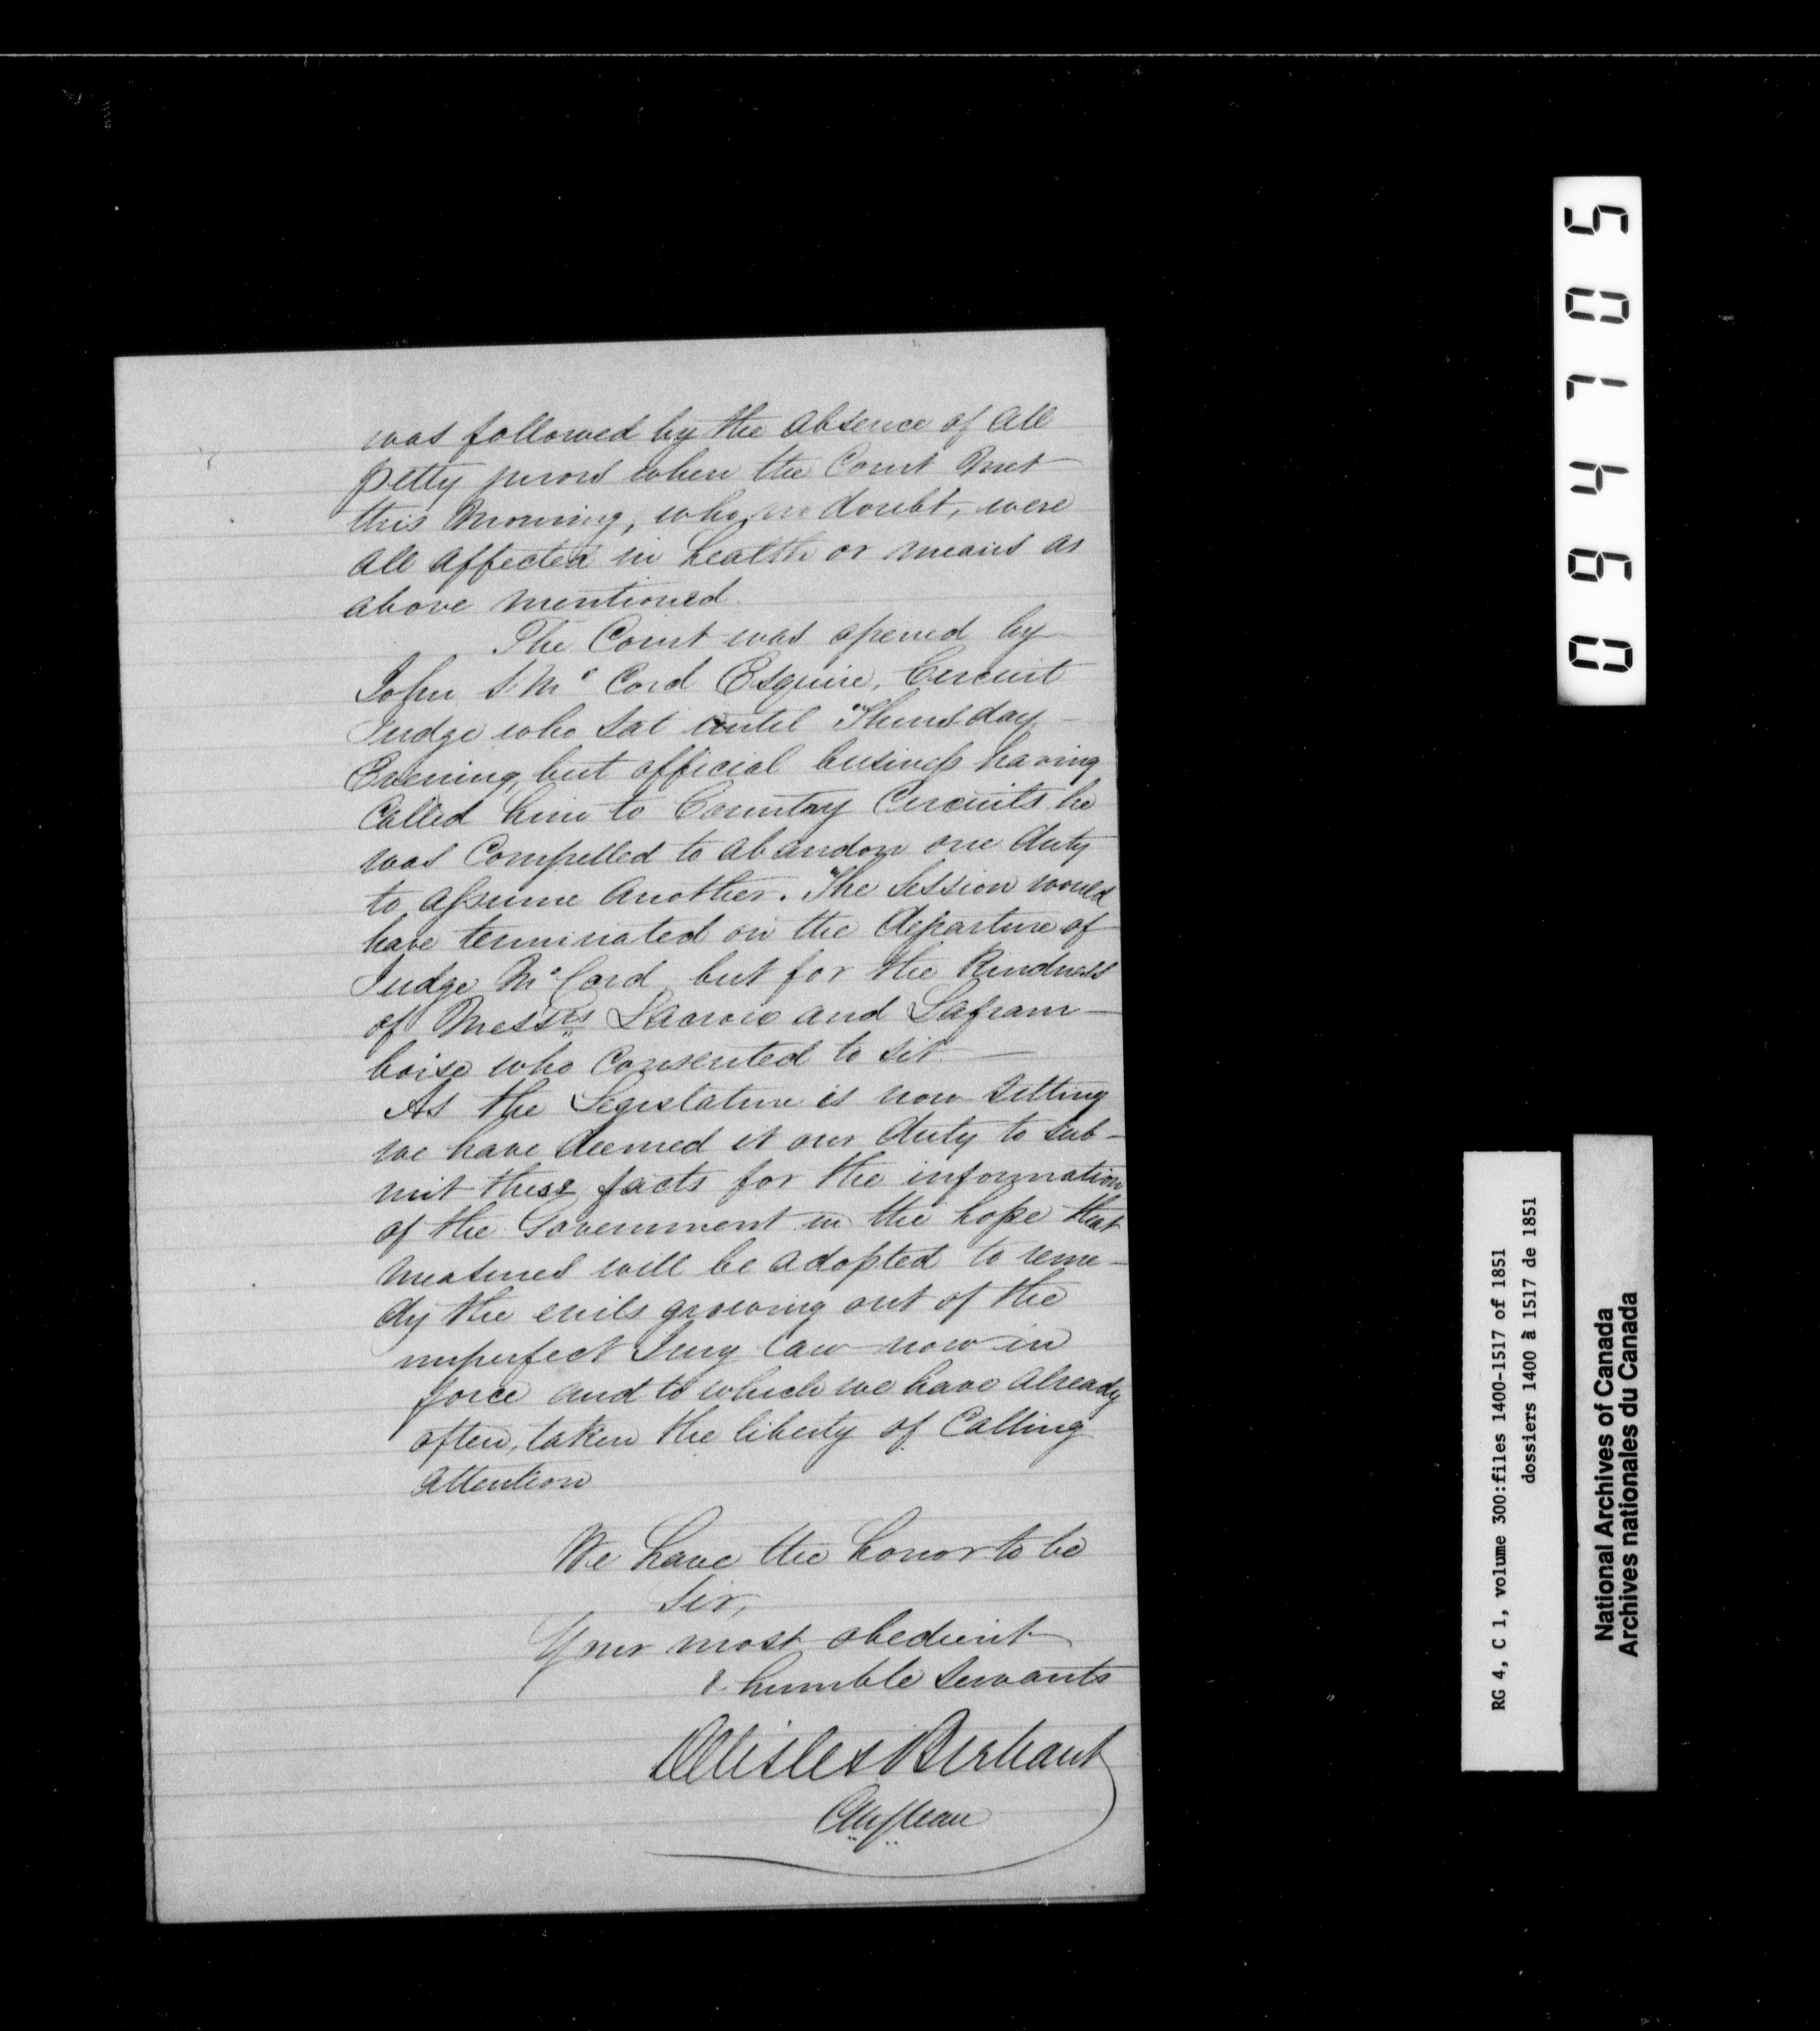 was followed by the absence of all
petty jurors when the Court met
this morning, who, no doubt, were
all affected in health or means as
above mentioned.
The Court was opened by
John S. Mc Cord Esquire, Circuit
Judge who sat until Thursday
Evening, but official business having
Called him to Country Circuits he
was Compelled to abandon one duty
to assume another. The session would
have terminated on the departure of
Judge McCord but for the kindness
of Messrs Lacroix and Lafram-
boise who Consented to sit
As the Legislature is now sitting
we have deemed it our duty to sub-
mit these facts for the information
of the Government in the hope that
measures will be adopted to reme-
dy the evils growing out of the
imperfect Jury Law now in
force and to which we have already
often, taken the liberty of Calling
attention
We have the honor to be
Sir,
Your most obedient
& humble servants
Delisle & Brehaut
094705
RG 4, C 1, volume 300:files 1400-1517 of 1851
dossiers 1400 à 1517 de 1851
National Archives of Canada
Archives nationales du Canada